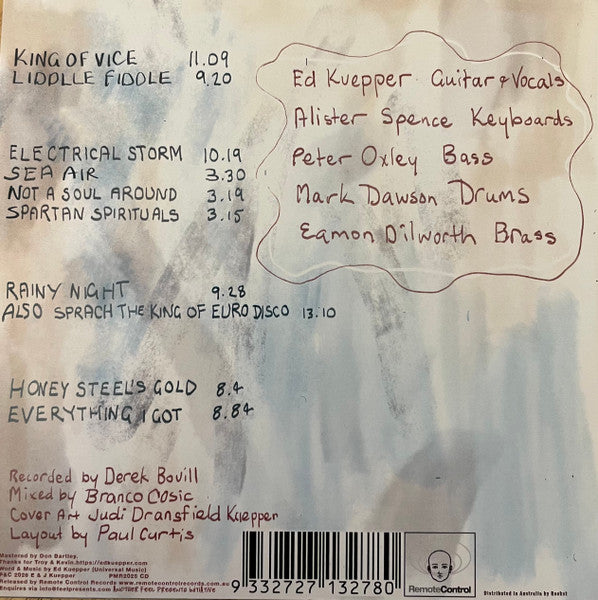 KING OF VICE 11.09
LIDDLLE FIDDLE 9.20
ELECTRICAL STORM 10.19
SEA AIR 3.30
NOT A SOUL AROUND 3.19
SPARTAN SPIRITUALS 3.15
RAINY NIGHT 9.28
ALSO SPRACH THE KING OF EURO DISCO 13.10
HONEY STEEL'S GOLD 8.4
EVERYTHING I GOT 8.84
Ed Kuepper Guitar & Vocals
Alister Spence Keyboards
Peter Oxley Bass
Mark Dawson Drums
Eamon Dilworth Brass
Recorded by Derek Bovill
Mixed by Branco Cosic
Cover Art Judi Dransfield Kuepper
Layout by Paul Curtis
Mastered by Don Bartley.
Thanks for Troy & Kevin.https://edkuepper.com
Word & Music by Ed Kuepper (Universal Music)
P&C 2025 E & J Kuepper PMR2025 CD
Released by Remote Control Records www.remotecontrolrecords.com.au
Enquires via info@feelpresents.com Another Feel Presents Initiative
9 332727 132780
RemoteControl
Distributed in Australia by Rocket